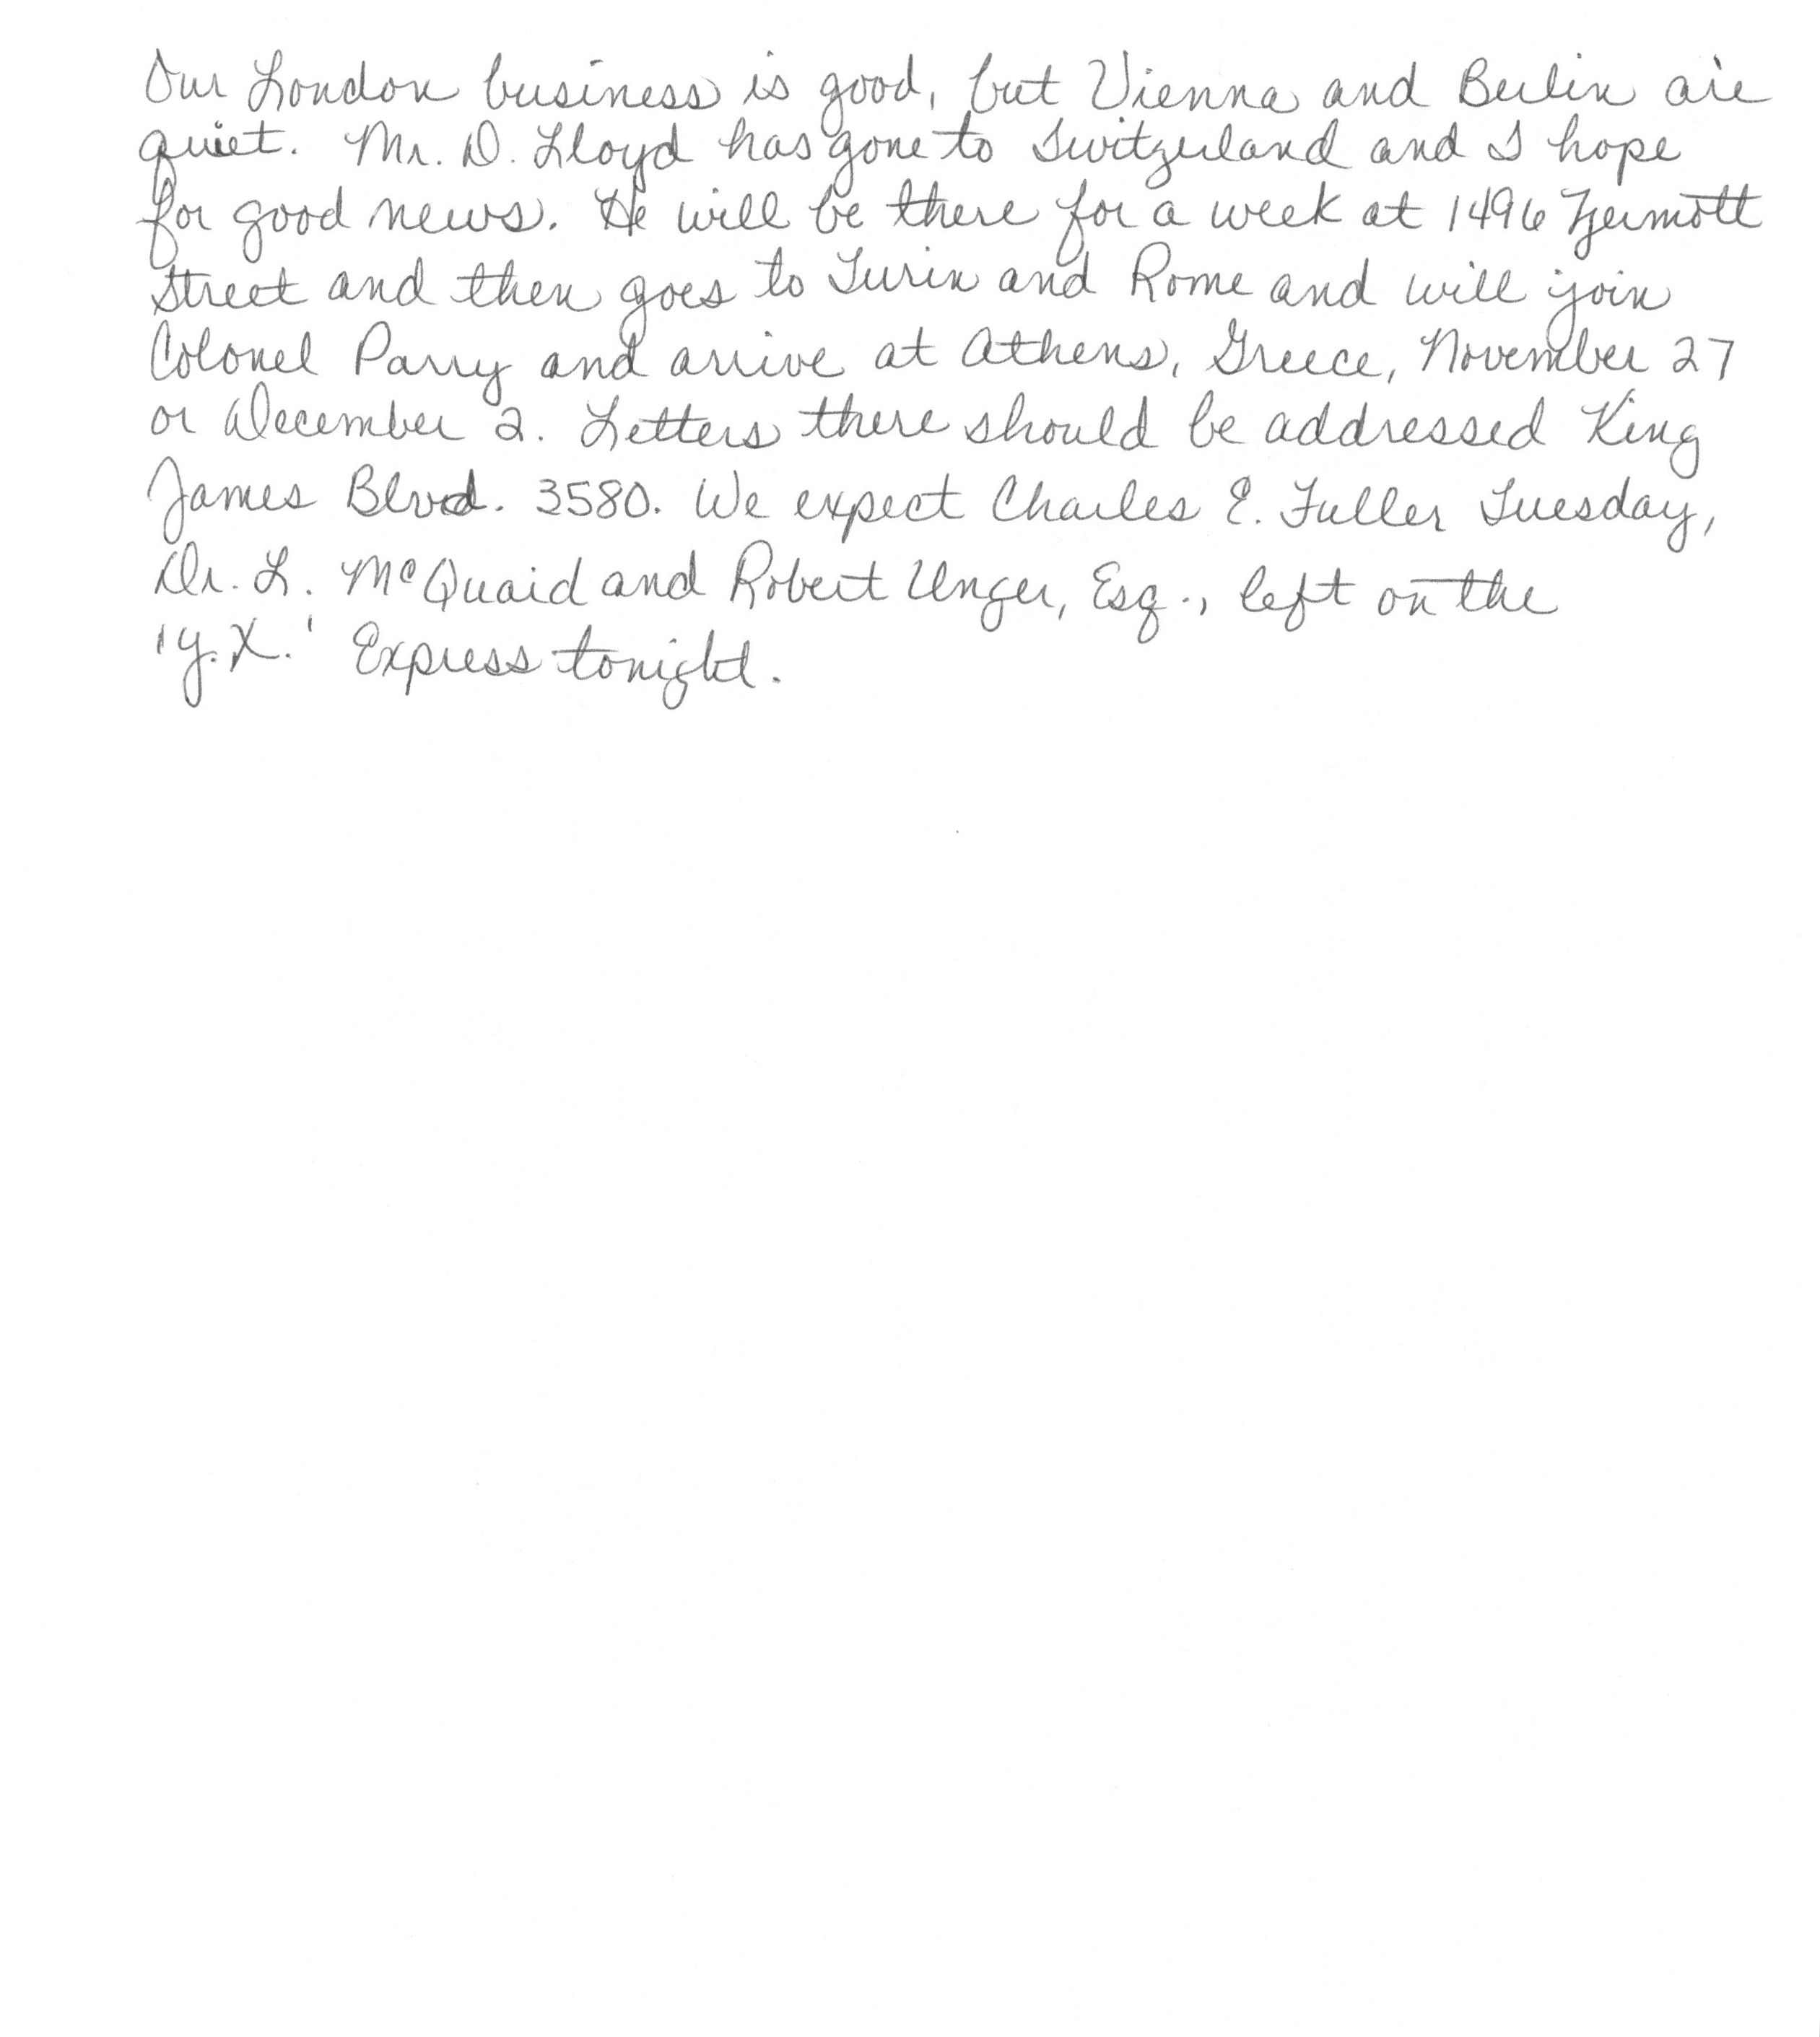 Our London business is good, but Vienna and Berlin are
quiet. Mr. D. Lloyd has gone to Switzerland and I hope
for good news. He will be there for a week at 1496 Zermott
Street and then goes to Turin and Rome and will join
Colonel Parry and arrive at Athens, Greece, November 27
or December 2. Letters there should be addressed King
James Blvd. 3580. We expect Charles E. Fuller Tuesday,
Dr. L. McQuaid and Robert Unger, Esq., left on the
'Y.X.' Express tonight.